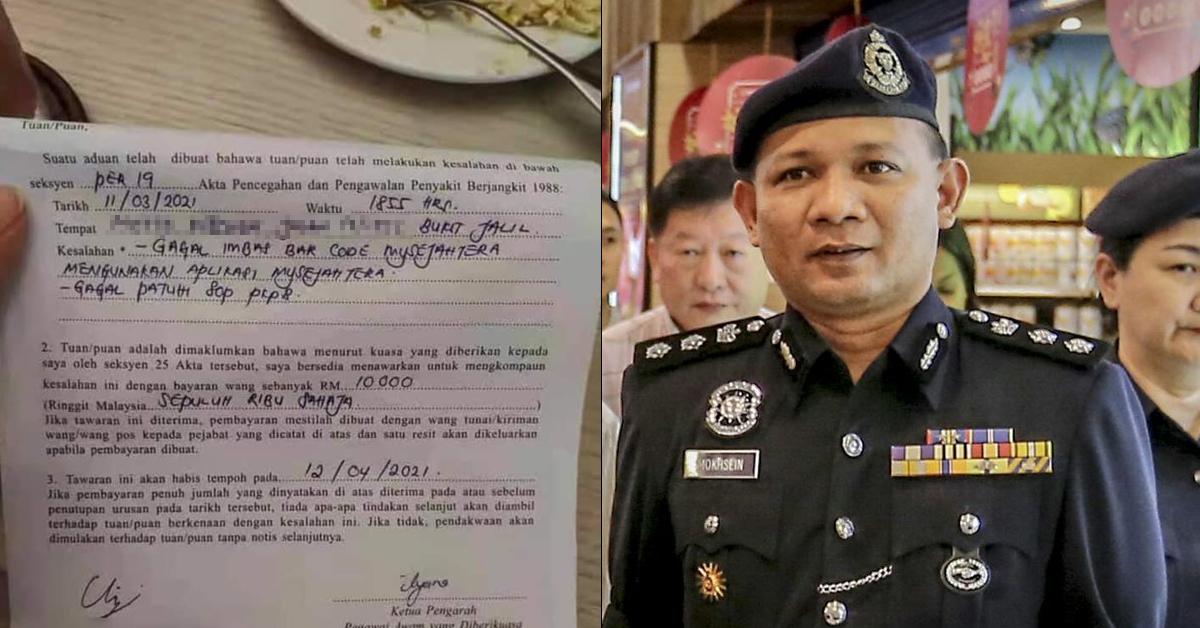 Tuan/Puan,
Suatu aduan telah dibuat bahawa tuan/puan telah melakukan kesalahan di bawah
seksyen PER 19 Akta Pencegahan dan Pengawalan Penyakit Berjangkit 1988:
Tarikh 11/03/2021 Waktu 1855 HRS.
Tempat BUKIT JALIL.
Kesalahan * - GAGAL IMBAS BAR CODE MYSEJAHTERA
MENGUNAKAN APLIKASI MYSEJAHTERA.
- GAGAL PATUH SOP PKPB.
2. Tuan/puan adalah dimaklumkan bahawa menurut kuasa yang diberikan kepada
saya oleh seksyen 25 Akta tersebut, saya bersedia menawarkan untuk mengkompaun
kesalahan ini dengan bayaran wang sebanyak RM 10 000
(Ringgit Malaysia SEPULUH RIBU SAHAJA)
Jika tawaran ini diterima, pembayaran mestilah dibuat dengan wang tunai/kiriman
wang/wang pos kepada pejabat yang dicatat di atas dan satu resit akan dikeluarkan
apabila pembayaran dibuat.
3. Tawaran ini akan habis tempoh pada 12/04/2021.
Jika pembayaran penuh jumlah yang dinyatakan di atas diterima pada atau sebelum
penutupan urusan pada tarikh tersebut, tiada apa-apa tindakan selanjut akan diambil
terhadap tuan/puan berkenaan dengan kesalahan ini. Jika tidak, pendakwaan akan
dimulakan terhadap tuan/puan tanpa notis selanjutnya.
Ketua Pengarah
Pegawai Awam yang Diberikuasa
MOKHSEIN